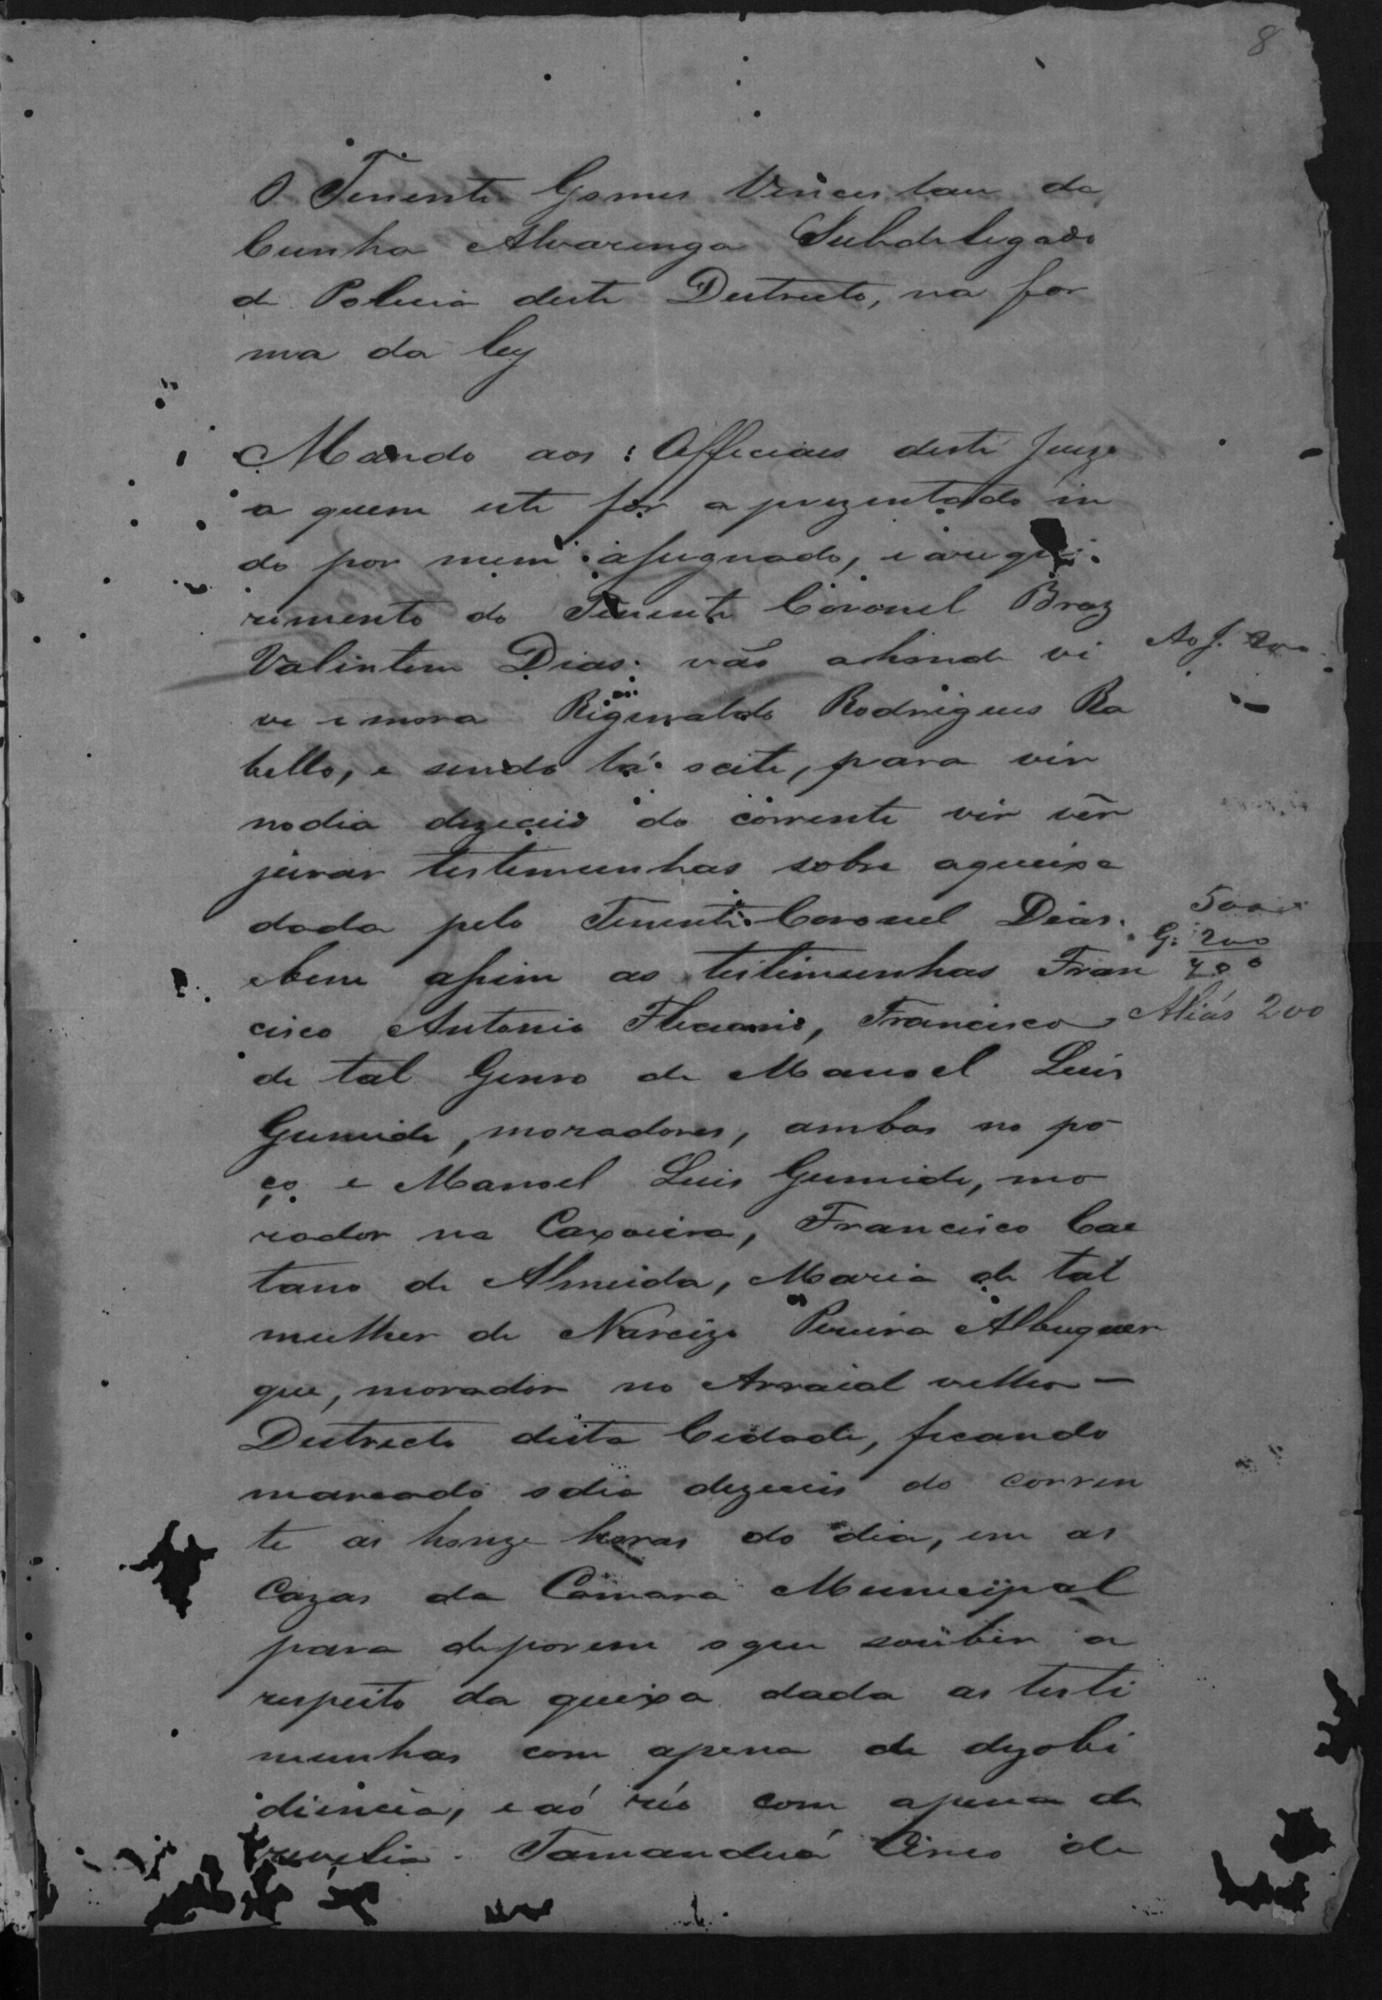 8
O Tenente Gomes Venceslau da
Cunha Alvarenga Subdelegado
de Policia deste Destricto, na for
ma da ley
Mando aos Officiaes deste Juizo
a quem este for aprezentado in
do por mim assignado, e a reque
rimento do Tenente Coronel Braz
Valintim Dias vão adonde vi
ve e mora Rigenaldo Rodrigues Ra
bello, e sendo lá o cite, para vir
no dia dezeceis do corrente vir vêr
jurar testemunhas sobre a queixa
dada pelo Tenente Coronel Dias
e bem assim as testimunhas Fran
cisco Antonio, Francisco
de tal Genro de Manoel Luis
Gumide, moradores, ambos no po
ço e Manoel Luis Gumide, mo
rador na Caxoeira, Francisco Cae
tano de Almeida, Maria de tal
mulher de Narcizo Pereira Albuquer
que, morador no Arraial velho –
Destricto desta Cidade, ficando
marcado o dia dezeceis do corren
te as honze horas do dia, em as
Cazas da Camara Municipal
para deporem o que souber a
respeito da queixa dada as testi
munhas com a pena de dezobi
diencia, e ao réo com a pena de
revelia. Tamanduá Cinco de
Ao J. 200
500
G: 200
700
Aliás 200